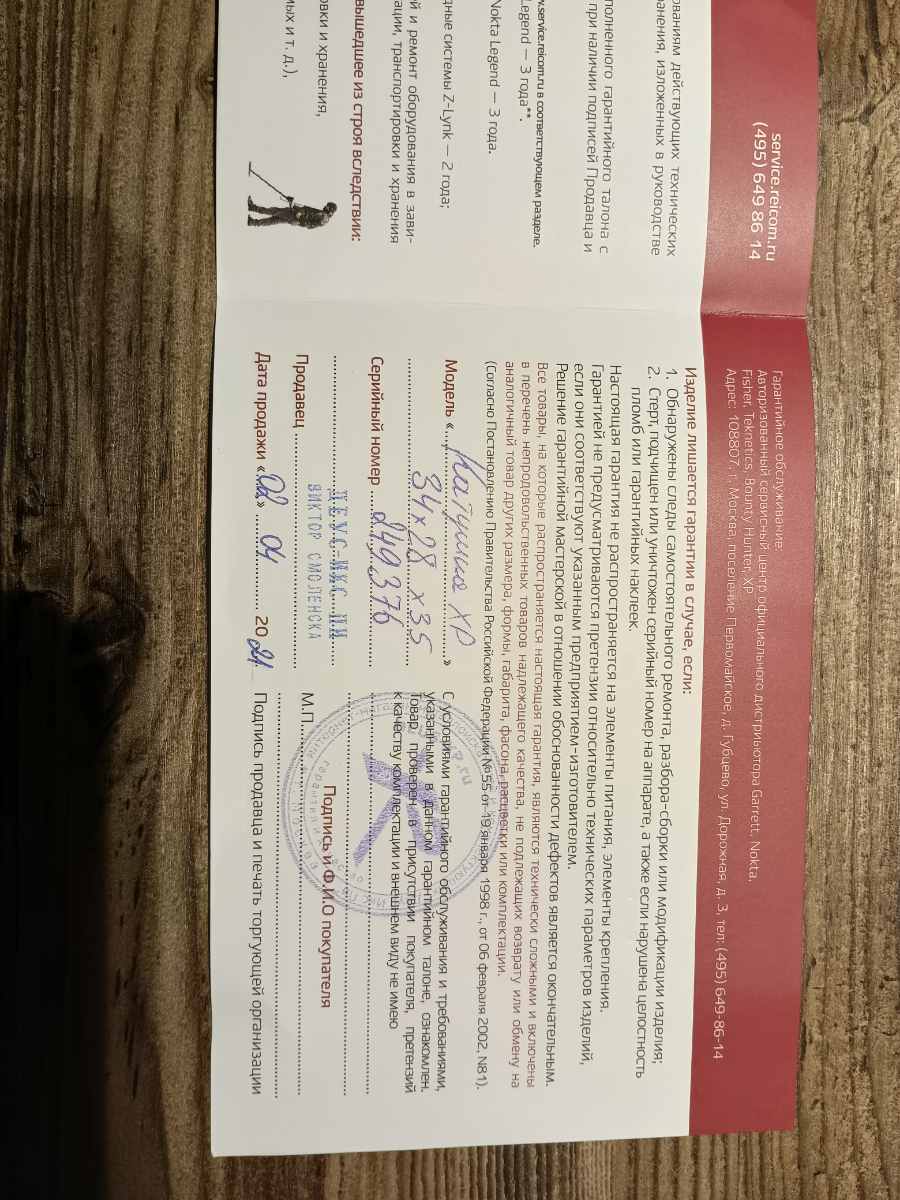 service.reicom.ru
(495) 649 86 14
ованиям действующих технических
ранения, изложенных в руководстве
полненного гарантийного талона с
при наличии подписей Продавца и
w.service.reicom.ru в соответствующем разделе.
Legend — 3 года**.
Nokta Legend — 3 года.
дные системы Z-Lynk — 2 года;
й и ремонт оборудования в зави-
ации, транспортировки и хранения
вышедшее из строя вследствии:
овки и хранения,
мых и т. д.),
Гарантийное обслуживание:
Авторизованный сервисный центр официального дистрибьютора Garrett, Nokta,
Fisher, Teknetics, Bounty Hunter, XP
Адрес: 108807, г. Москва, поселение Первомайское, д. Губцево, ул. Дорожная, д. 3, тел: (495) 649-86-14
Изделие лишается гарантии в случае, если:
1. Обнаружены следы самостоятельного ремонта, разбора-сборки или модификации изделия;
2. Стерт, подчищен или уничтожен серийный номер на аппарате, а также если нарушена целостность
пломб или гарантийных наклеек.
Настоящая гарантия не распространяется на элементы питания, элементы крепления.
Гарантией не предусматриваются претензии относительно технических параметров изделий,
если они соответствуют указанным предприятием-изготовителем.
Решение гарантийной мастерской в отношении обоснованности дефектов является окончательным.
Все товары, на которые распространяется настоящая гарантия, являются технически сложными и включены
в перечень непродовольственных товаров надлежащего качества, не подлежащих возврату или обмену на
аналогичный товар других размера, формы, габарита, фасона, расцветки или комплектации.
(Согласно Постановлению Правительства Российской Федерации №55 от 19 января 1998 г., от 06 февраля 2002, N81).
Модель «Катушка XP»
34x28 x35
Серийный номер 249376
ДЕУС-ИКС ПИ
Продавец ВИКТОР СМОЛЕНСКА
Дата продажи «02» 04 2021
С условиями гарантийного обслуживания и требованиями,
указанными в данном гарантийном талоне, ознакомлен.
Товар проверен в присутствии покупателя, претензий
к качеству комплектации и внешнем виду не имею
Подпись и Ф.И.О покупателя
М.П.
Подпись продавца и печать торгующей организации